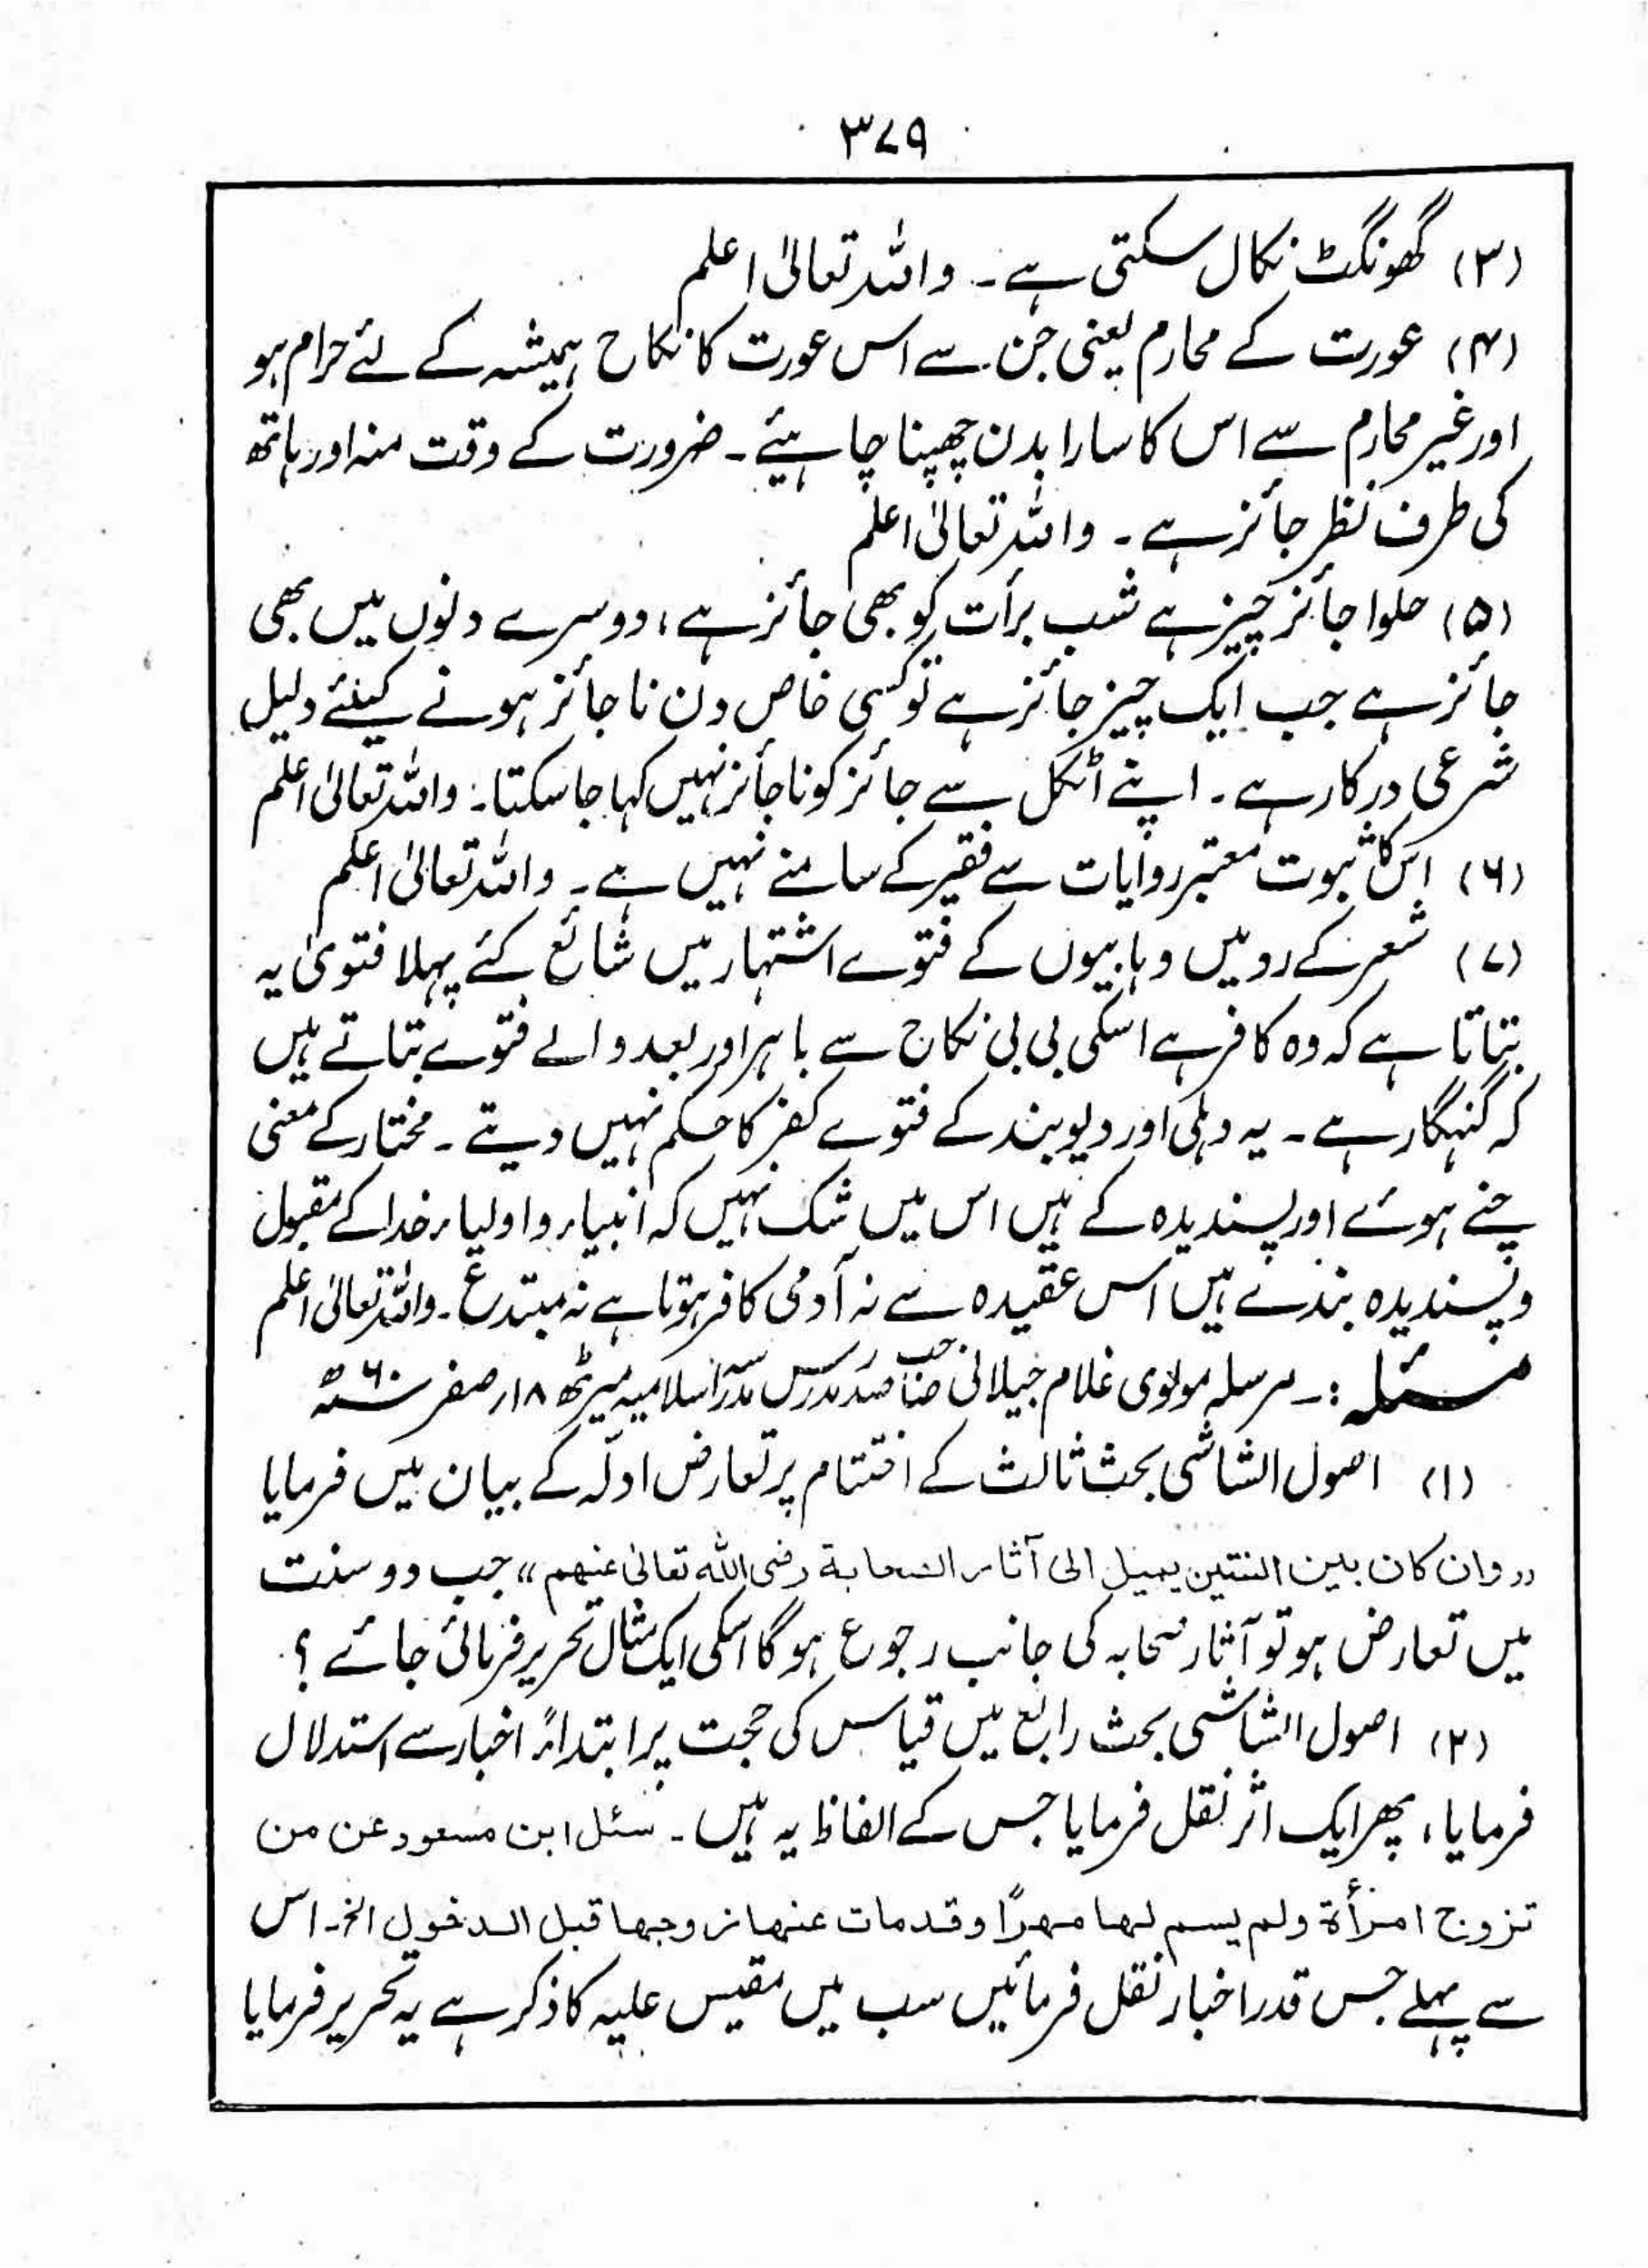 ۳۷۹
(۳) گھونگٹ نکال سکتی ہے۔ واللہ تعالیٰ اعلم
(۴) عورت کے محارم یعنی جن سے اس عورت کا نکاح ہمیشہ کے لئے حرام ہو
اور غیر محارم سے اس کا سارا بدن چھپنا چاہیئے۔ ضرورت کے وقت منہ اور ہاتھ
کی طرف نظر جائز ہے۔ واللہ تعالیٰ اعلم
(۵) حلوا جائز چیز ہے شب برأت کو بھی جائز ہے، دوسرے دنوں میں بھی
جائز ہے جب ایک چیز جائز ہے تو کسی خاص دن ناجائز ہونے کیلئے دلیل
شرعی درکار ہے۔ اپنے اٹکل سے جائز کو ناجائز نہیں کہا جاسکتا۔ واللہ تعالیٰ اعلم
(۶) اس کا ثبوت معتبر روایات سے فقیر کے سامنے نہیں ہے۔ واللہ تعالیٰ اعلم
(۷) شعر کے رد میں وہابیوں کے فتوے اشتہار میں شائع کئے پہلا فتویٰ یہ
بتاتا ہے کہ وہ کافر ہے اسکی بی بی نکاح سے باہر اور بعد والے فتوے بتاتے ہیں
کہ گنہگار ہے۔ یہ دہلی اور دیوبند کے فتوے کفر کا حکم نہیں دیتے۔ مختار کے معنی
چنے ہوئے اور پسندیدہ کے ہیں اس میں شک نہیں کہ انبیاء و اولیاء خدا کے مقبول
و پسندیدہ بندے ہیں اس عقیدہ سے نہ آدمی کافر ہوتا ہے نہ مبتدع۔ واللہ تعالیٰ اعلم
مسئلہ:۔ مرسلہ مولوی غلام جیلانی صاحب صدر مدرس مدرسہ اسلامیہ میرٹھ ۱۸؍ صفر ۶۰ھ
(۱) اصول الشاشی بحث ثالث کے اختتام پر تعارض ادلّہ کے بیان میں فرمایا
،،وان کان بین السنتین یمیل الی آثار الصحابة رضی اللہ تعالیٰ عنهم،، جب دو سنت
میں تعارض ہو تو آثار صحابہ کی جانب رجوع ہوگا اسکی ایک مثال تحریر فرمائی جائے؟
(۲) اصول الشاشی بحث رابع میں قیاس کی حجت پر ابتداءً اخبار سے استدلال
فرمایا، پھر ایک اثر نقل فرمایا جس کے الفاظ یہ ہیں۔ سئل ابن مسعود عن من
تزوج امرأة ولم یسم لها مهرًا وقد مات عنها زوجها قبل الدخول الخ۔ اس
سے پہلے جس قدر اخبار نقل فرمائیں سب میں مقیس علیہ کا ذکر ہے یہ تحریر فرمایا